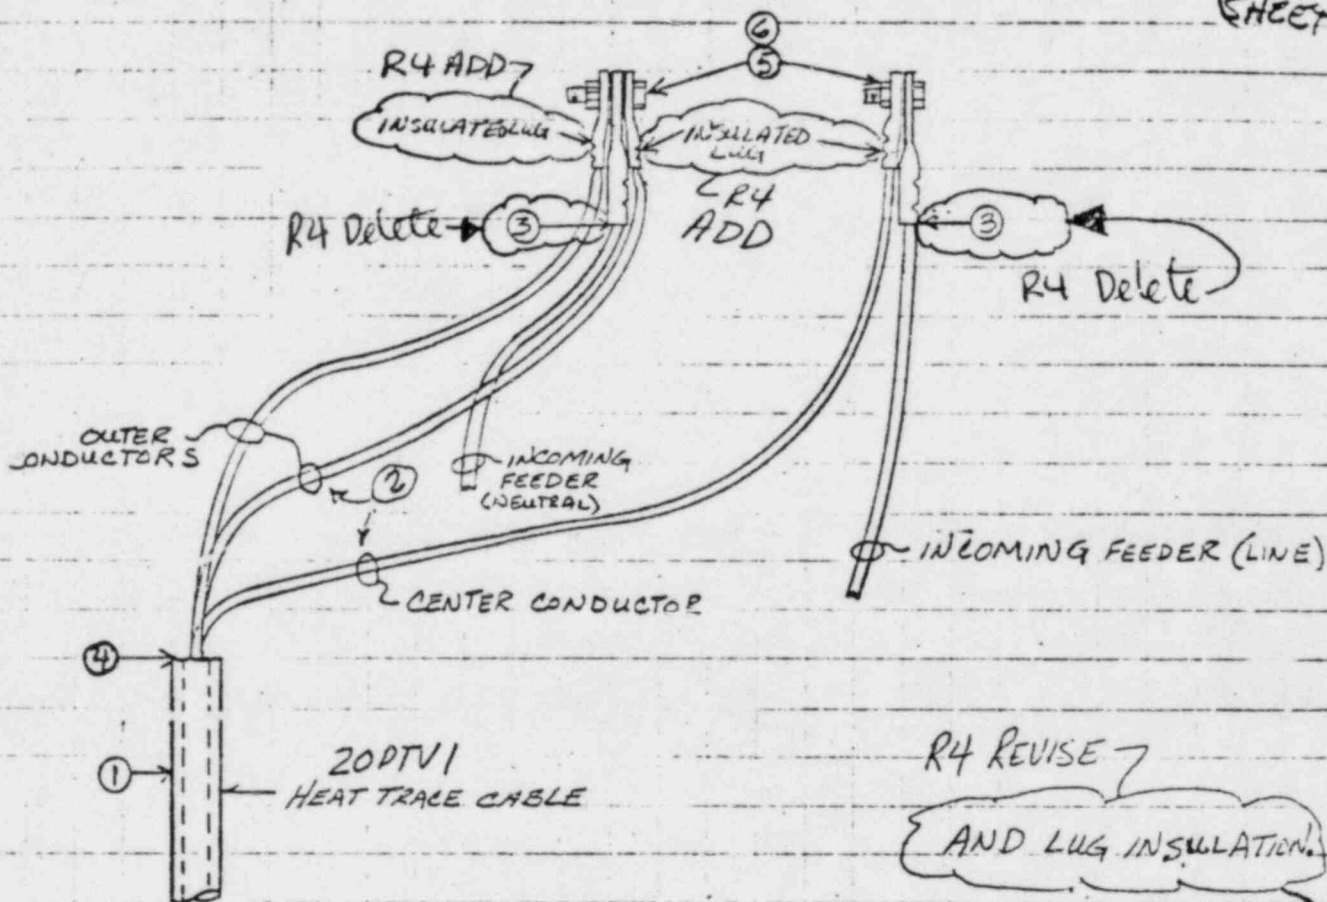 SHEET
6
5
R4 ADD
INSULATED LUG
INSULATED
LUG
R4
ADD
R4 Delete
3
3
R4 Delete
OUTER
CONDUCTORS
2
INCOMING
FEEDER
(NEUTRAL)
INCOMING FEEDER (LINE)
CENTER CONDUCTOR
4
1
20PTV1
HEAT TRACE CABLE
R4 REVISE
AND LUG INSULLATION.